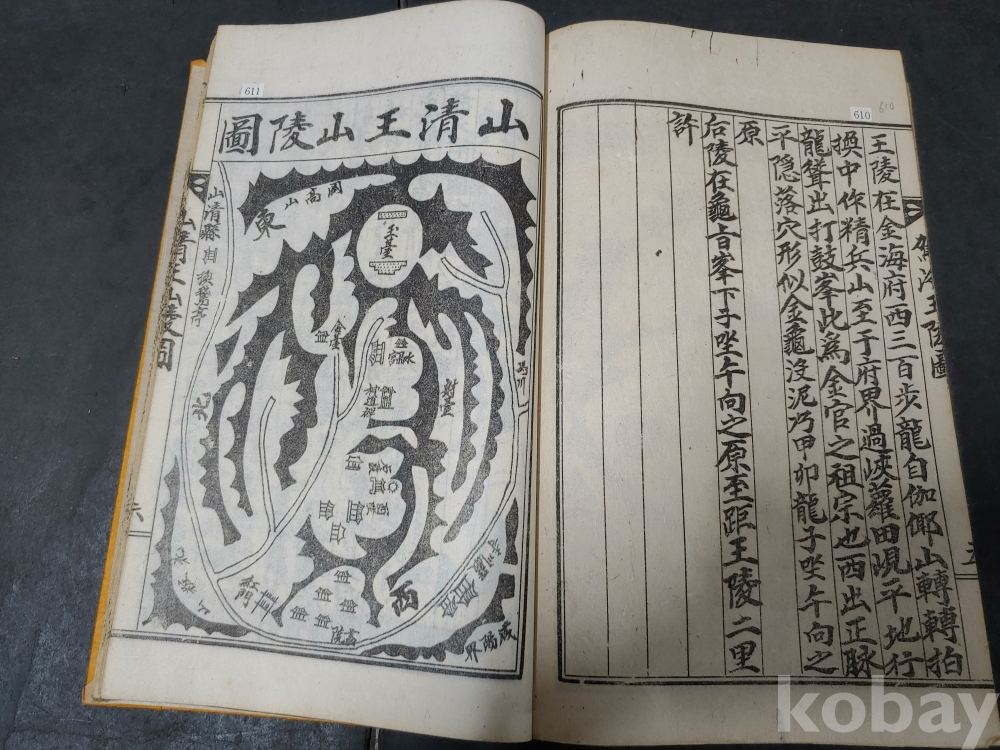 610
610
駕洛王陵圖
王陵在金海府西三百步龍自伽倻山轉轉拍
換中作精兵山至于府界過峽蘿田峴平地行
龍聳出打鼓峯此為金官之祖宗也西出正脉
平隱落穴形似金龜没泥乃甲卯龍子坐午向之
原
后陵在龜旨峯下子坐午向之原至距王陵二里
許
611
山清王山陵圖
國高山
東
玉臺
山清縣
換鵝亭
北
水
神道碑
西
紅門
咸陽界
山清王山陵圖
六
kobay